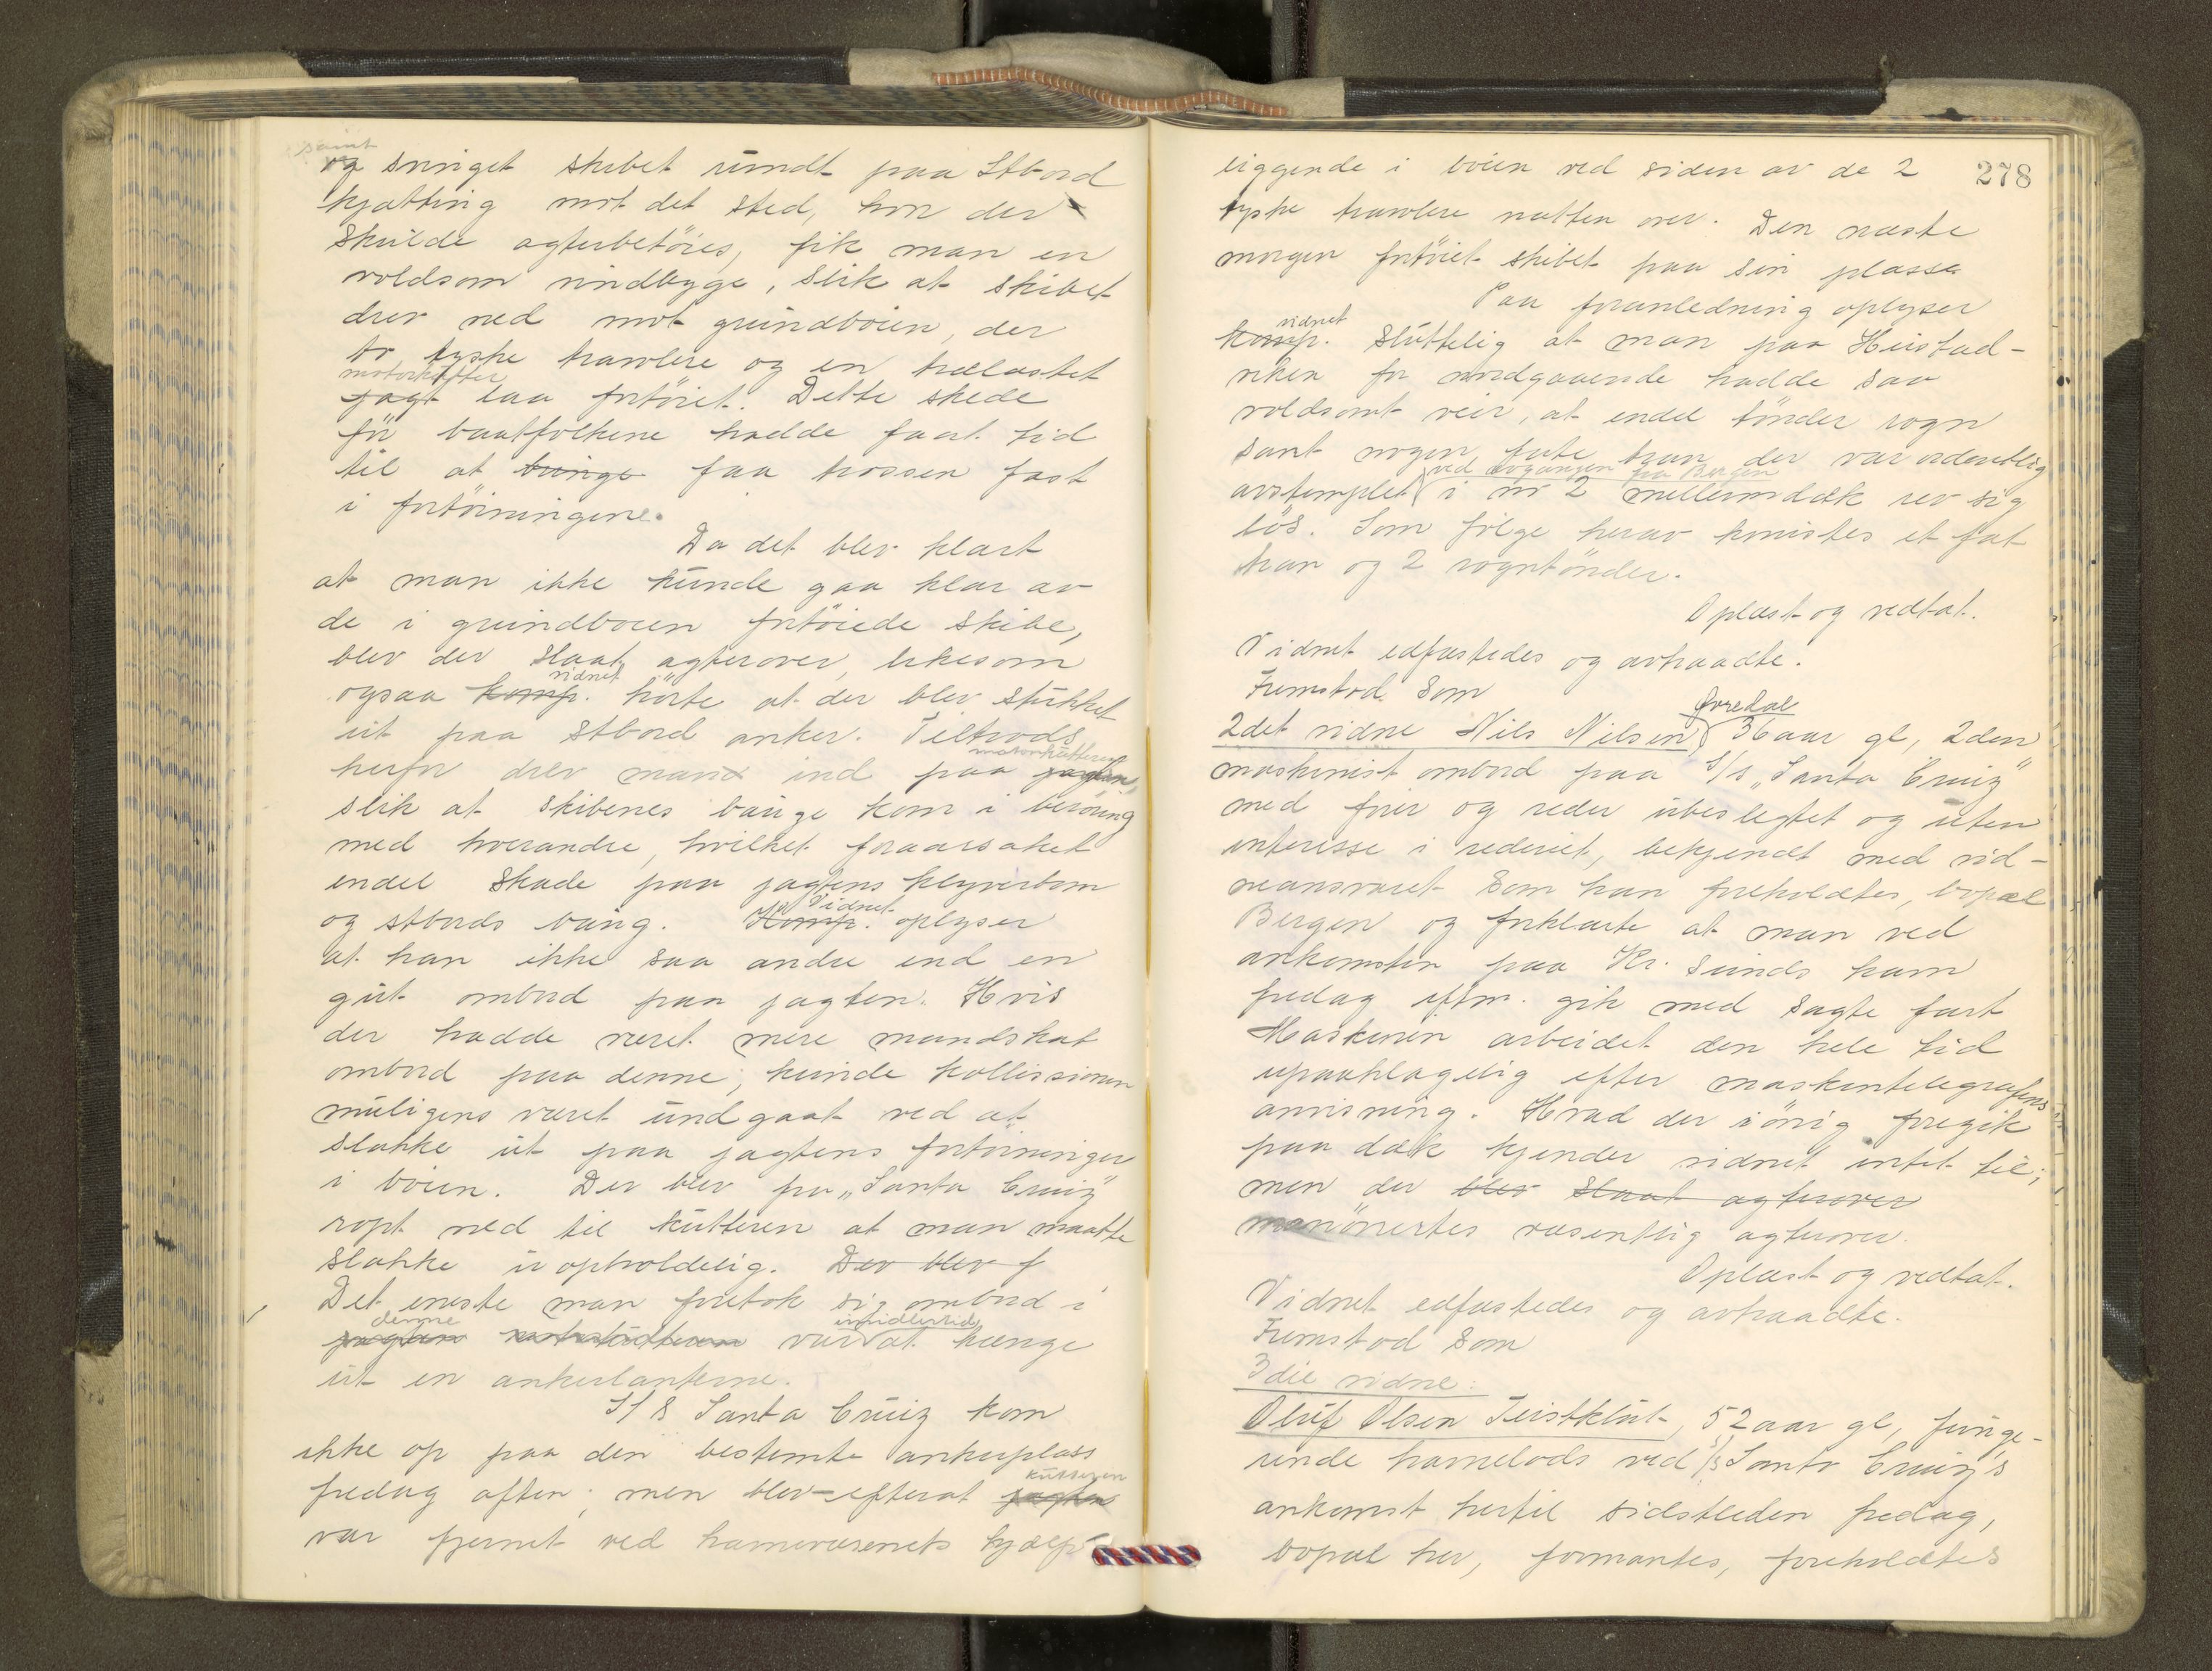 samt
og svinget skibet rundt paa Stbord
kjætting mot det sted, hvor der
skulde agterbetöies, fik man en
voldsom vindbyge, slik at skibet
drev ned mot grundböien, der
to tyske trawlere og en trælastet
motorkutter
jagt laa fortöiet. Dette skede
för baatfolkene hadde faat tid
til at bringe faa trossen fast
i fortöiningene.
Da det blev klart
at man ikke kunde gaa klar av
de i grundboien fortöiede skibe,
blev der slaat agterover, likesom
vidnet
ogsaa komp. hörte at der blev stukket
ut paa Stbord anker. Tiltrods
motorkutteren
herfor drev man ind paa jagten,
slik at skibenes bauge kom i beröring
med hverandre, hvilket foraarsaket
endel skade paa jagtens klyverbom
Vidnet
og stbords baug. Komp. oplyser
at han ikke saa andre end en
gut ombord paa jagten. Hvis
der hadde været mere mandskab
ombord paa denne, kunde kollissionen
muligens været undgaat ved at
slakke ut paa jagtens fortöininger
i böien. Der blev fra "Santa Cruz"
ropt ned til kutteren at man maatte
slakke uopholdelig. Der blev f
Det eneste man foretok sig ombord i
denne imidlertid
jagten motorkutteren var at hænge
ut en ankerlanterne.
S/S Santa Cruz kom
ikke op paa den bestemte ankerplass
kutteren
fredag aften; men blev - efterat jagten
var fjernet ved havnevæsenets hjælp -
278
liggende i böien ved siden av de 2
tyske trawlere natten over. Den næste
morgen fortöiet skibet paa sin plass.
Paa foranledning oplyser
vidnet
komp. sluttelig at man paa Hustad-
viken for nordgaaende hadde saa
voldsomt veir, at endel tönder rogn
samt nogen fate tran der var ordentlig
ved avgangen fra Bergen
avstemplet i nr 2 mellemdæk rev sig
lös. Som fölge herav knustes et fat
tran og 2 rogntönder.
Oplæst og vedtat.
Vidnet edfæstedes og avtraadte.
Fremstod som
Övredal
2det vidne Nils Nilsen 36 aar gl, 2den
maskinist ombord paa S/S "Santa Cruz"
med förer og reder ubeslegtet og uten
interesse i rederiet, bekjendt med vid-
neansvaret som han foreholdtes, bopæl
Bergen og forklarte at man ved
ankomsten paa Kr. sunds havn
fredag eftm. gik med sagte fart
Maskinen arbeidet den hele tid
upaaklagelig efter maskintelegrafens
anvisning. Hvad der iövrig foregik
paa dæk kjender vidnet intet til;
men der blev slaat agterover
manövertes væsentlig agterover.
Oplæst og vedtat.
Vidnet edfæstedes og avtraadte.
Fremstod som
3die vidne:
Oluf Olsen Teistklub, 52 aar gl, funge-
rende havnelods ved S/S Santa Cruz's
ankomst hertil sidstleden fredag,
bopæl her, formantes, foreholdtes